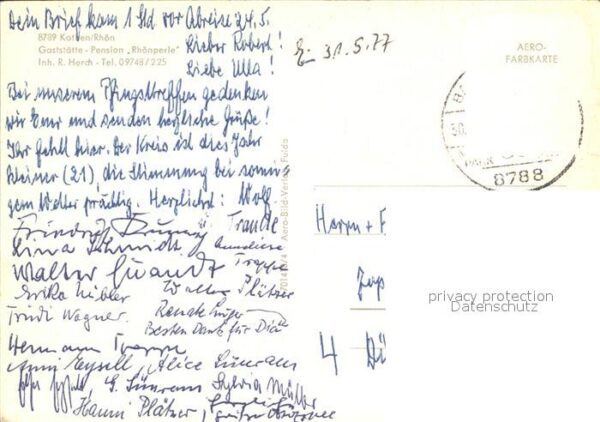 Dein Brief kam 1 Std vor Abreise 24.5.
8789 Kothen/Rhön
Gaststätte - Pension „Rhönperle"
Inh. R. Herch - Tel. 09748/225
Lieber Robert!
Liebe Ulla!
Bei unserem Pfingsttreffen gedenken
wir Euer und senden herzliche Grüße!
Ihr fehlt hier. Der Kreis ist dies Jahr
kleiner (21), die Stimmung bei sonni-
gem Wetter prächtig. Herzlichst: Wolf
Friedrich Traude
Lina Schmidt. Anneliese
Walter Trappe
Erika Walter Plätzer
Trudi Wagner. Renate
Besten Dank für Dia
Hermann Trappe
Anni Alice
G. Sylvia Müller
Hanni Plätzer,
E. 31.5.77
AERO-
FARBKARTE
30.
8788
Aero-Bild-Verlag Fulda
Herrn + F
4 Dü
privacy protection
Datenschutz